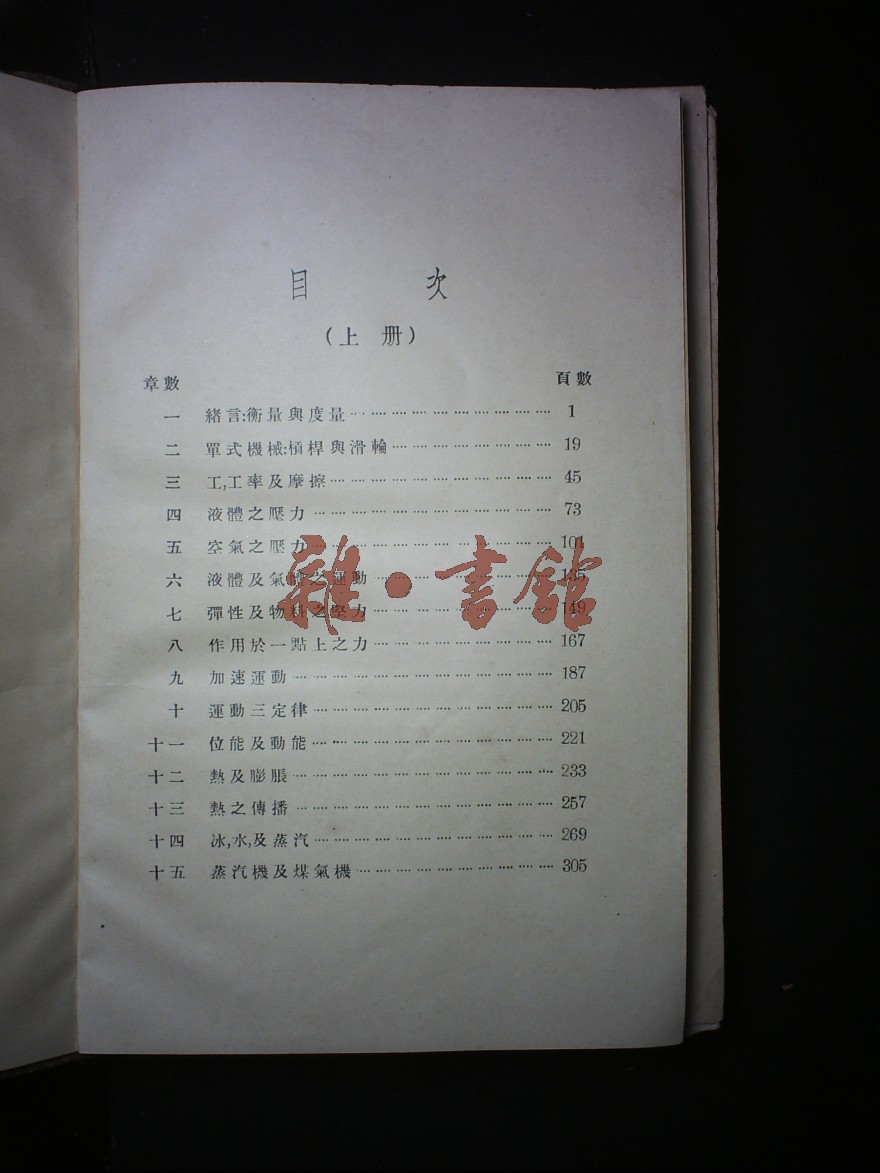 目 次
(上 册)
章數 頁數
一 緒言:衡量與度量 1
二 單式機械:槓桿與滑輪 19
三 工,工率及摩擦 45
四 液體之壓力 73
五 空氣之壓力 101
六 液體及氣體之運動 135
七 彈性及物料之堅力 149
八 作用於一點上之力 167
九 加速運動 187
十 運動三定律 205
十一 位能及動能 221
十二 熱及膨脹 233
十三 熱之傳播 257
十四 冰,水,及蒸汽 269
十五 蒸汽機及煤氣機 305
雜·書館